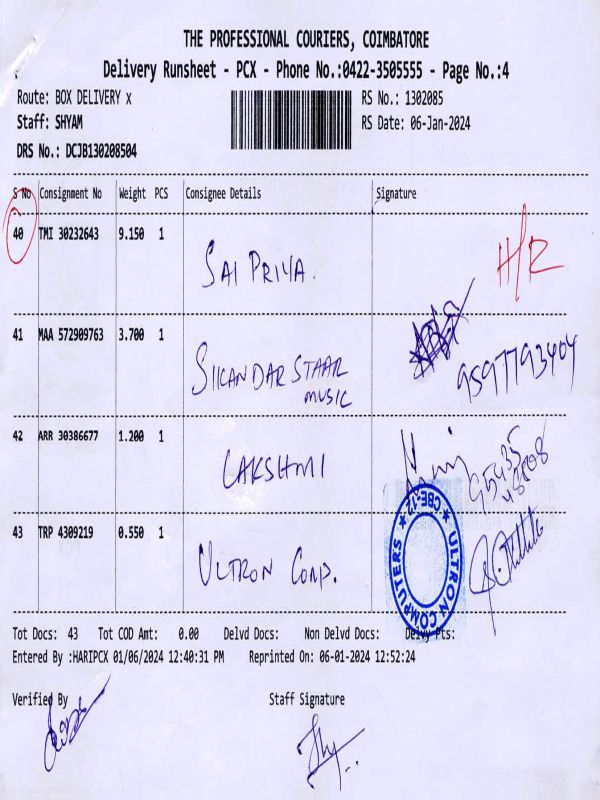 THE PROFESSIONAL COURIERS, COIMBATORE
Delivery Runsheet - PCX - Phone No.:0422-3505555 - Page No.:4
Route: BOX DELIVERY x
RS No.: 1302085
Staff: SHYAM
RS Date: 06-Jan-2024
DRS No.: DCJB130208504
S No Consignment No Weight PCS Consignee Details Signature
40 TMI 30232643 9.150 1
SAI PRIYA.
H/R
41 MAA 572909763 3.700 1
SIKANDAR STAAR
MUSIC
9597793404
42 ARR 30386677 1.200 1
LAKSHMI
95435
48808
43 TRP 4309219 0.550 1
ULTRON CORP.
ULTRON COMPUTERS
CBE-12
Tot Docs: 43 Tot COD Amt: 0.00 Delvd Docs: Non Delvd Docs: Delvy Pts:
Entered By :HARIPCX 01/06/2024 12:40:31 PM Reprinted On: 06-01-2024 12:52:24
Verified By
Staff Signature